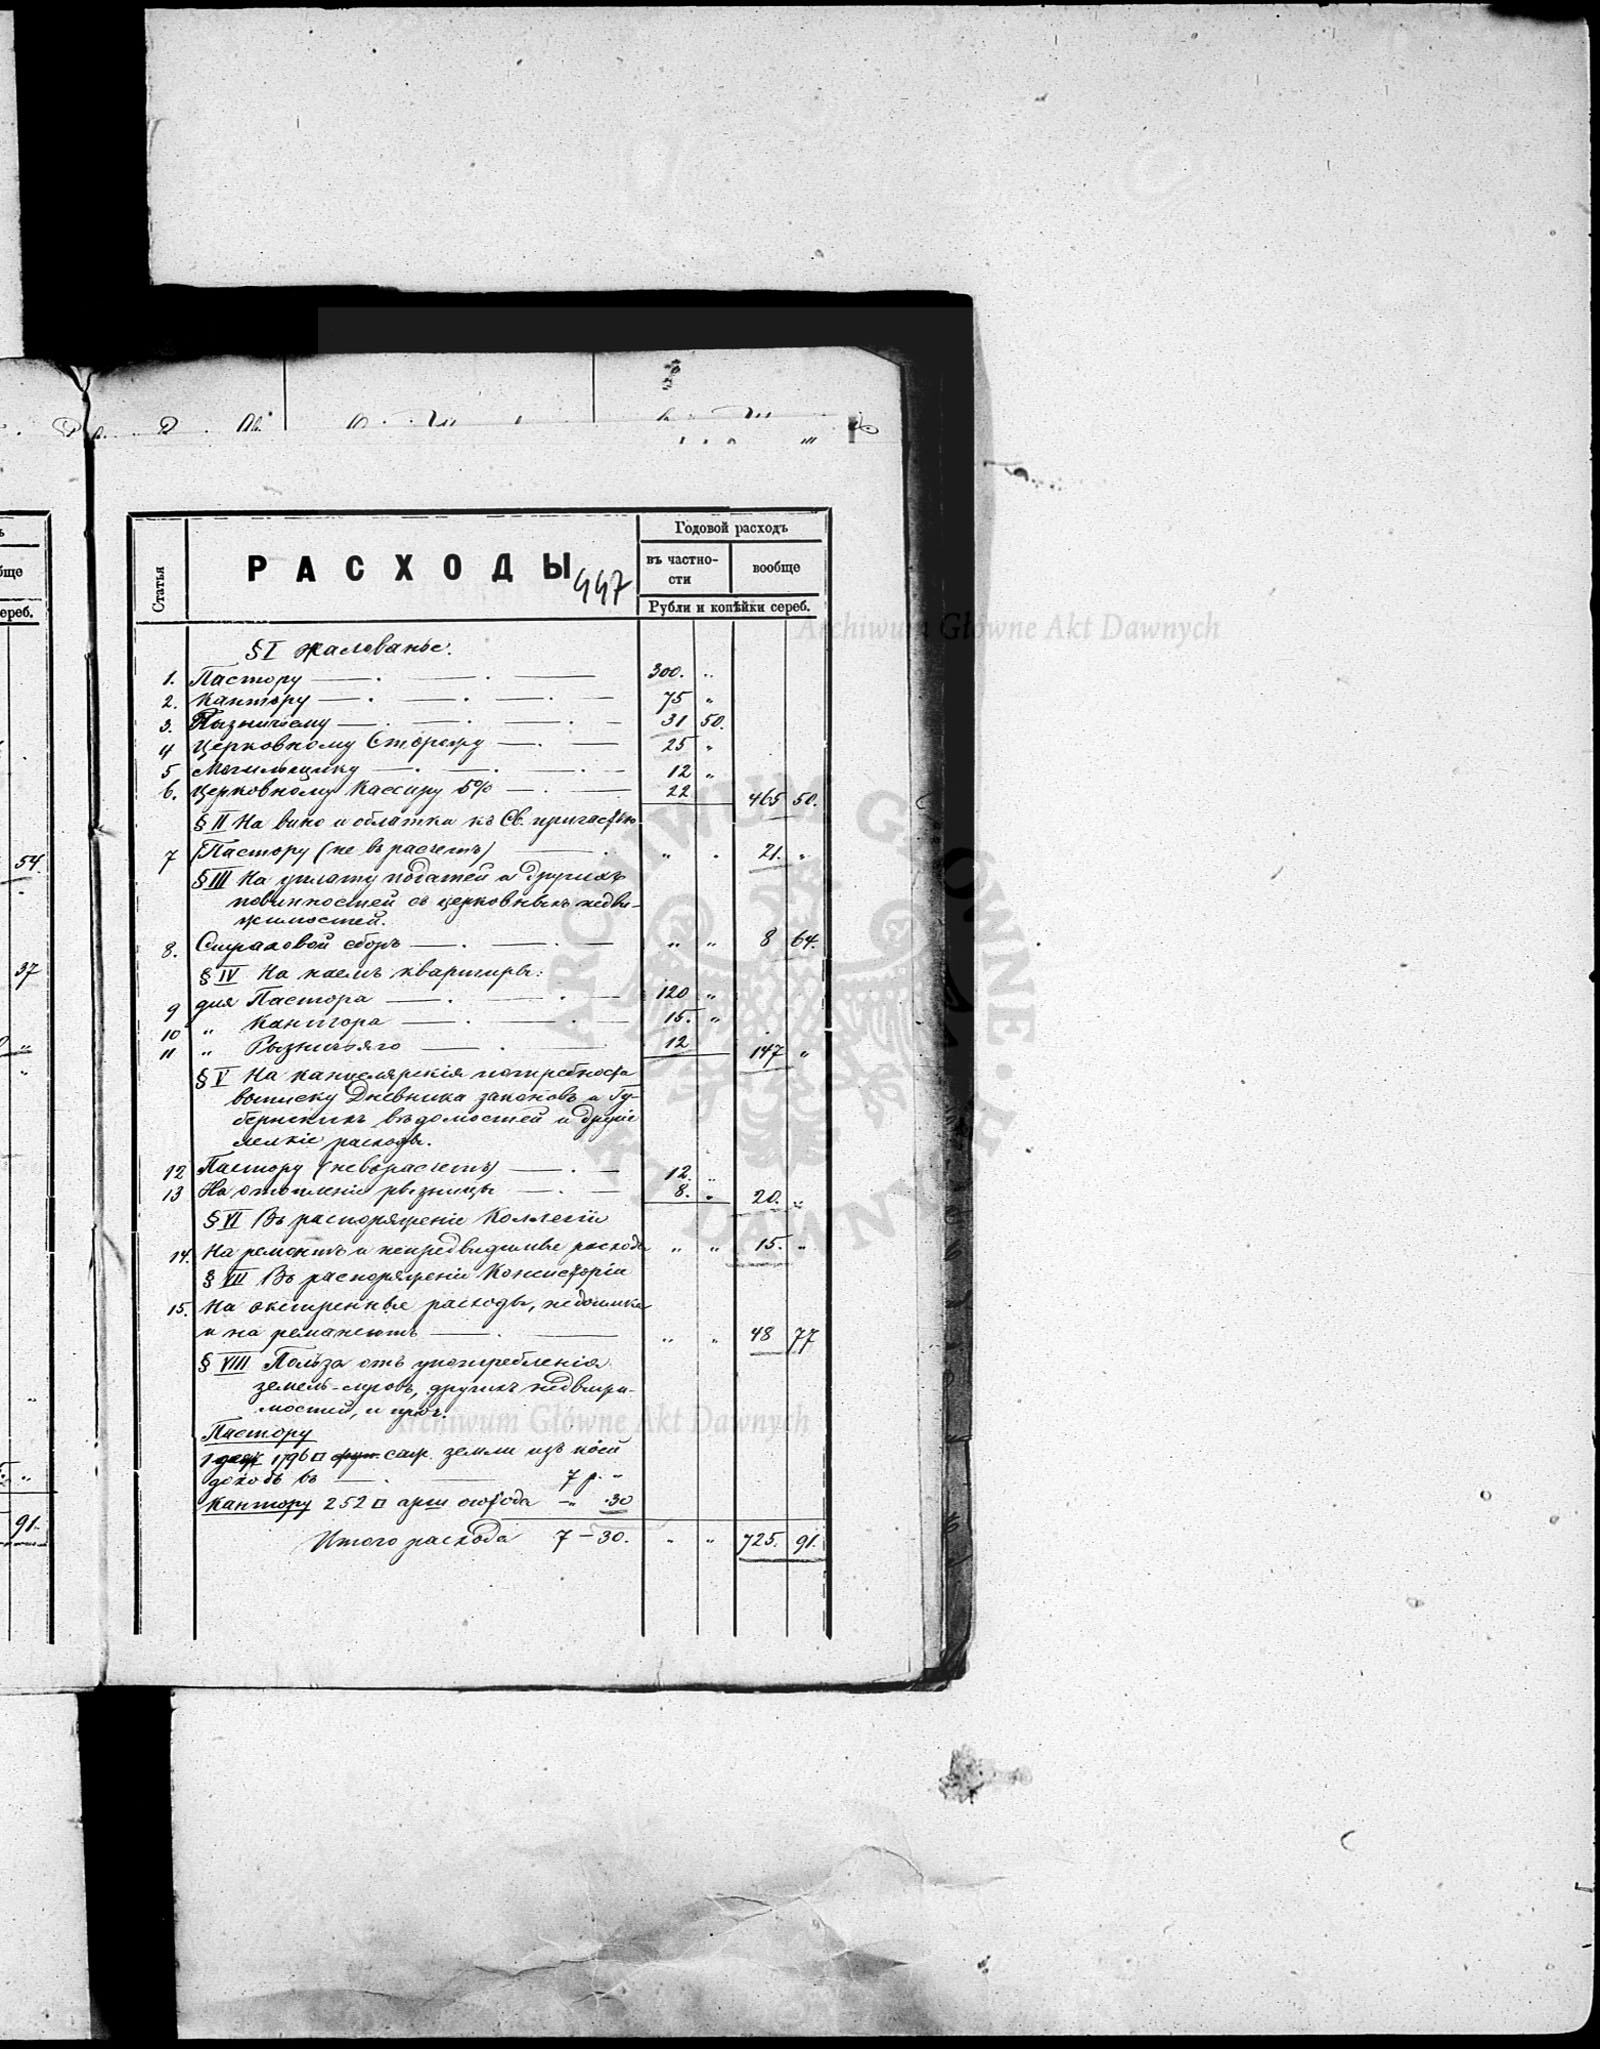 ъ
бще
ереб.
54.
37
91.
РАСХОДЫ
447
Статья
Годовой расходъ
въ частно-
сти
вообще
Рубли и копѣйки сереб.
§ I Жалованье.
1. Пастору — . — . — 300. "
2. Кантору — . — . — . — 75 "
3. Ризничему — . — . — . — 31 50.
4 Церковному Сторожу — . — 25 "
5 Могильщику — . — . — . — 12 "
6. Церковному Кассиру 5% — . — 22 465 50.
§ II На вино и облатки къ Св. причастію
7 Пастору (не въ расчетъ) — . " . 21. "
§ III На уплату податей и другихъ
повинностей съ церковныхъ недви-
жимостей.
8. Страховой сборъ — . — . — " " 8 64.
§ IV На наемъ квартиры:
9 для Пастора — . — . — 120 "
10 " Кантора — . — . — 15. "
11 " Ризничяго — . — 12 147 "
§ V На канцелярскія потребности
выписку Дневника законовъ и Гу-
бернскихъ вѣдомостей и другіе
мелкіе расходы.
12 Пастору (не въ расчетъ) — . — 12. "
13 На отопленіе ризницы — . — 8. " 20. "
§ VI Въ распоряженіе Коллегіи
14. На ремонтъ и непредвидимые расходы " " 15. "
§ VII Въ распоряженіи Консисторіи
15. На экстренные расходы, недоимки
и на ремонентъ — . — " " 48 77
§ VIII Польза отъ употребленія
земель-луговъ, другихъ недвижи-
мостей, и проч.
Пастору
1 дес. 1796 □ саж. земли изъ коей
доходъ въ — . — 7 р. "
Кантору 252 □ арш огорода — " 30
Итого расхода 7 — 30. " " 725. 91.
Archiwum Główne Akt Dawnych
Archiwum Główne Akt Dawnych
ARCHIWUM GŁÓWNE AKT DAWNYCH